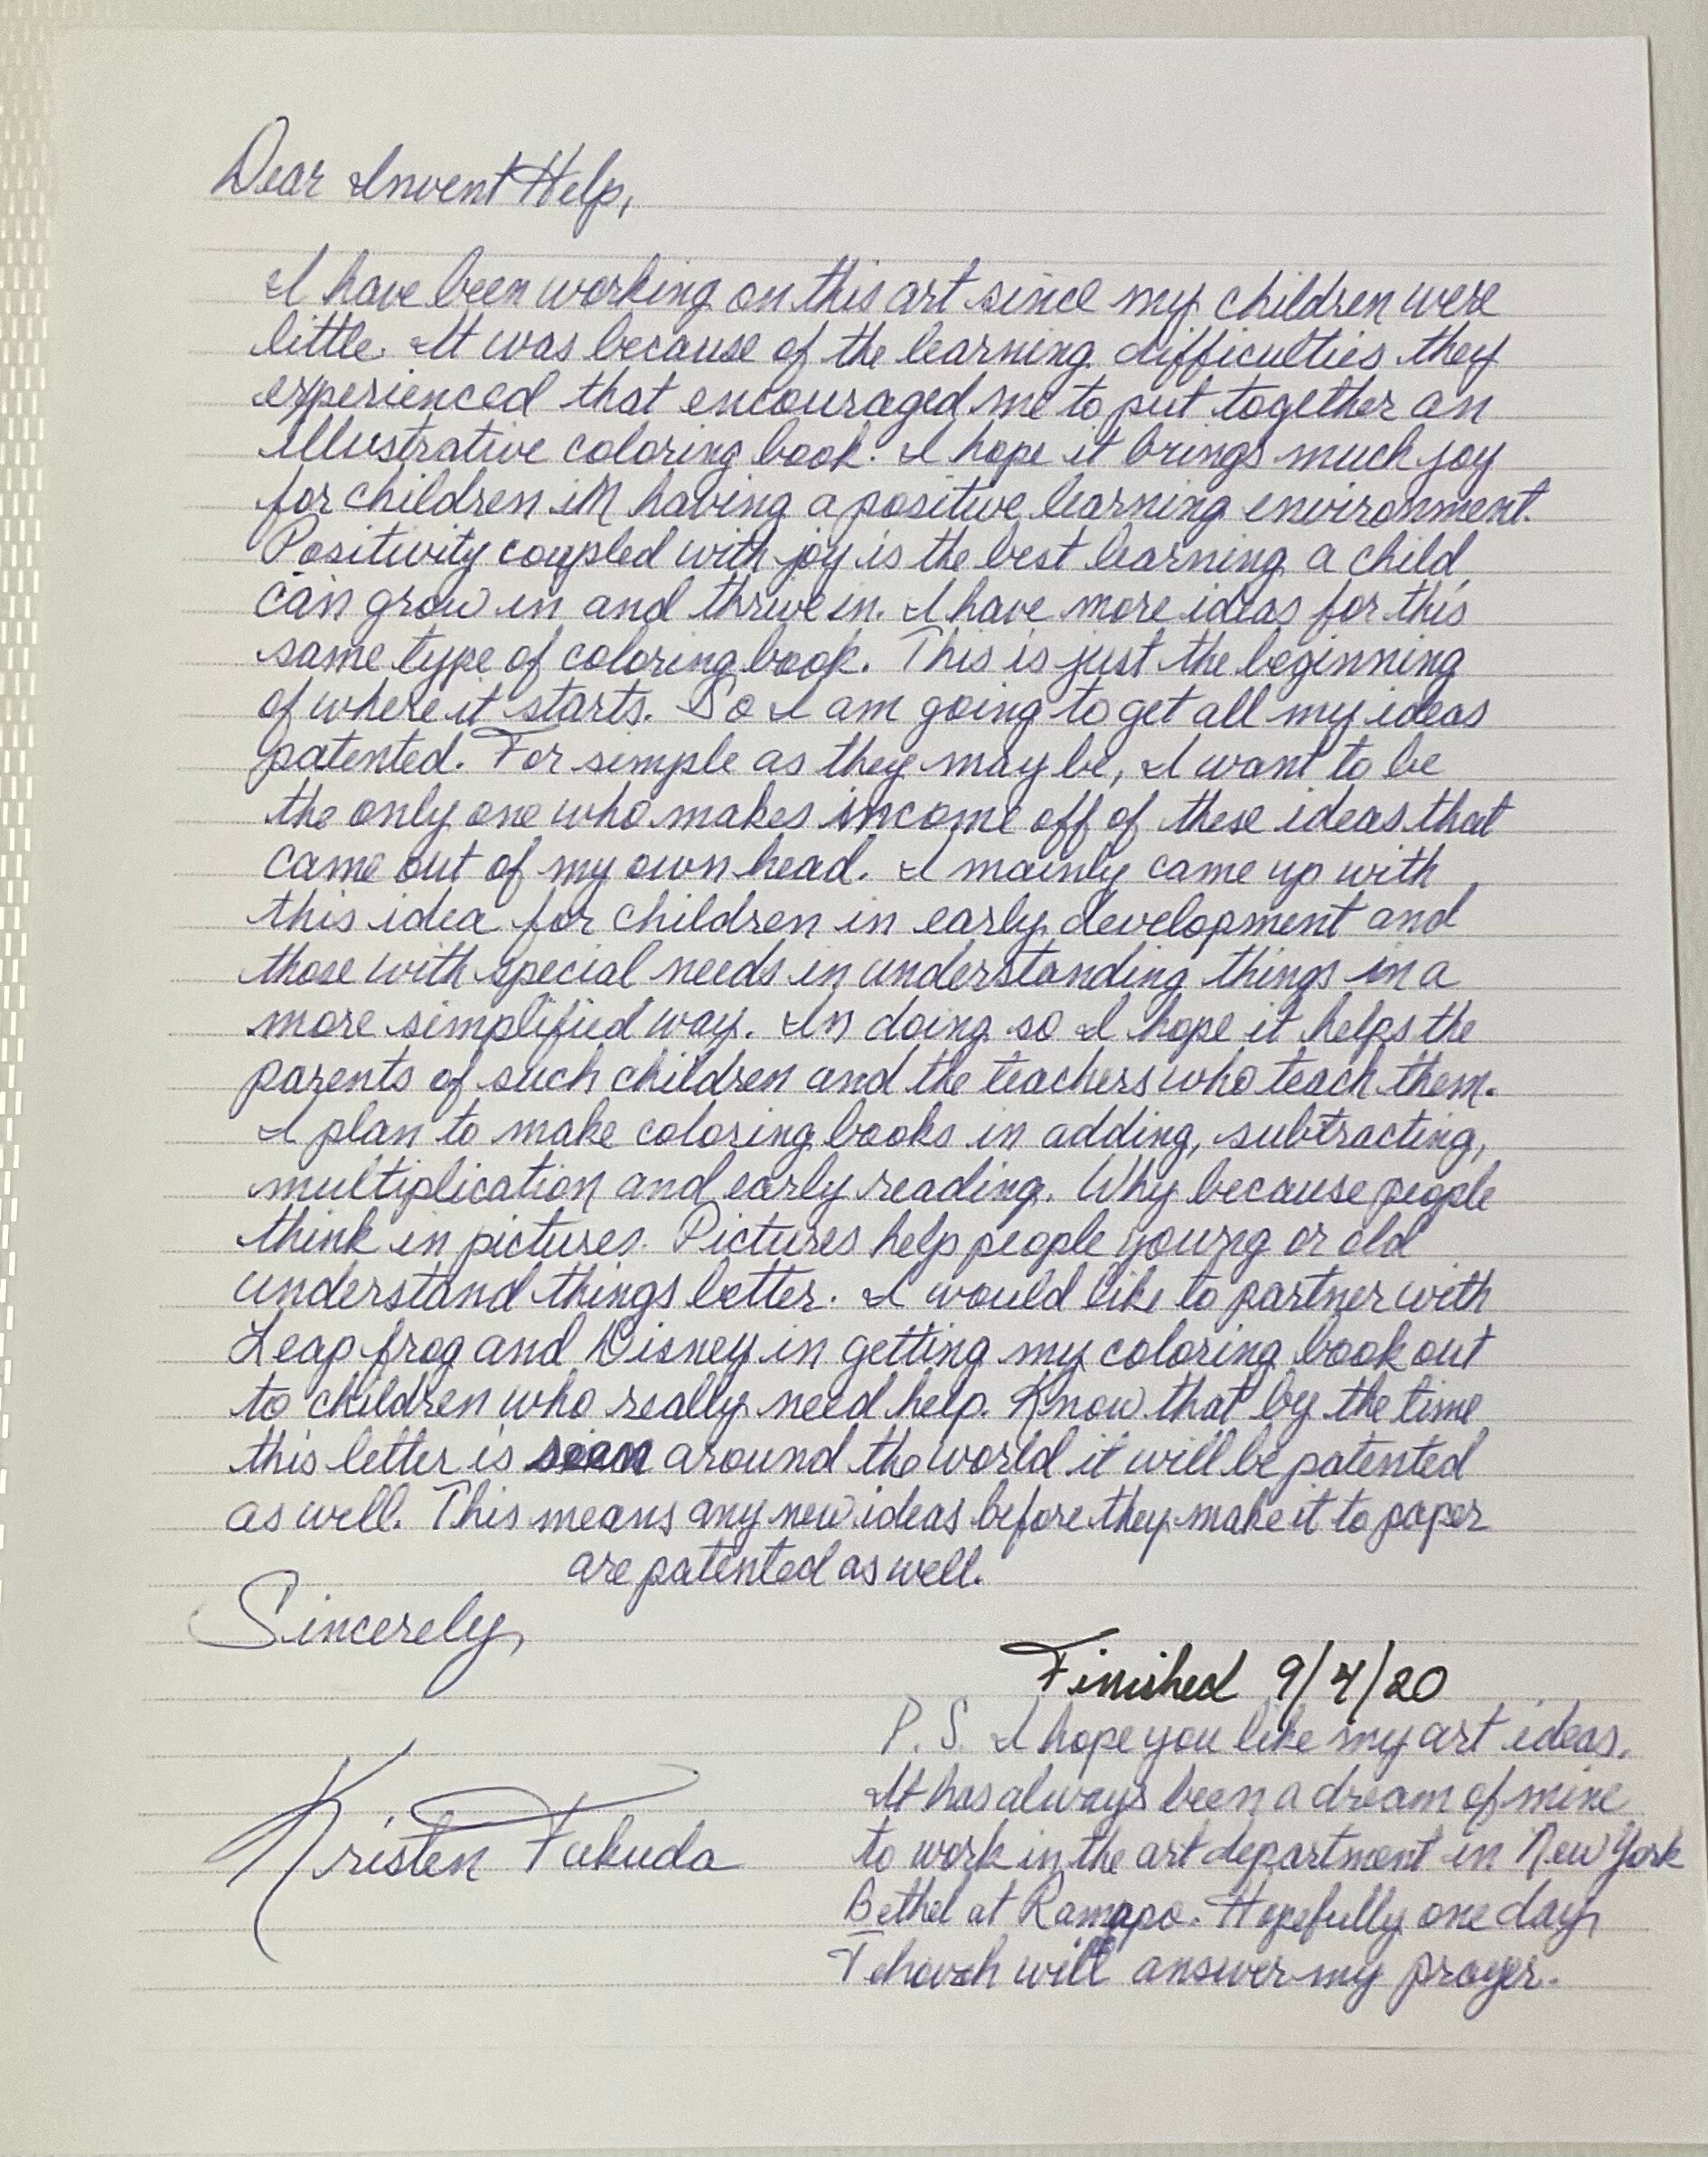 Dear Invent Help,
I have been working on this art since my children were
little. It was because of the learning difficulties they
experienced that encouraged me to put together an
illustrative coloring book. I hope it brings much joy
for children in having a positive learning environment.
Positivity coupled with joy is the best learning a child
can grow in and thrive in. I have more ideas for this
same type of coloring book. This is just the beginning
of where it starts. So I am going to get all my ideas
patented. For simple as they may be, I want to be
the only one who makes income off of these ideas that
came out of my own head. I mainly came up with
this idea for children in early development and
those with special needs in understanding things in a
more simplified way. In doing so I hope it helps the
parents of such children and the teachers who teach them.
I plan to make coloring books in adding, subtracting,
multiplication and early reading. Why because people
think in pictures. Pictures help people young or old
understand things better. I would like to partner with
Leap frog and Disney in getting my coloring book out
to children who really need help. Know that by the time
this letter is seen around the world it will be patented
as well. This means any new ideas before they make it to paper
are patented as well.
Sincerely,
Finished 9/4/20
Kristen Fukuda
P.S. I hope you like my art ideas.
It has always been a dream of mine
to work in the art department in New York
Bethel at Ramapo. Hopefully one day
Jehovah will answer my prayer.